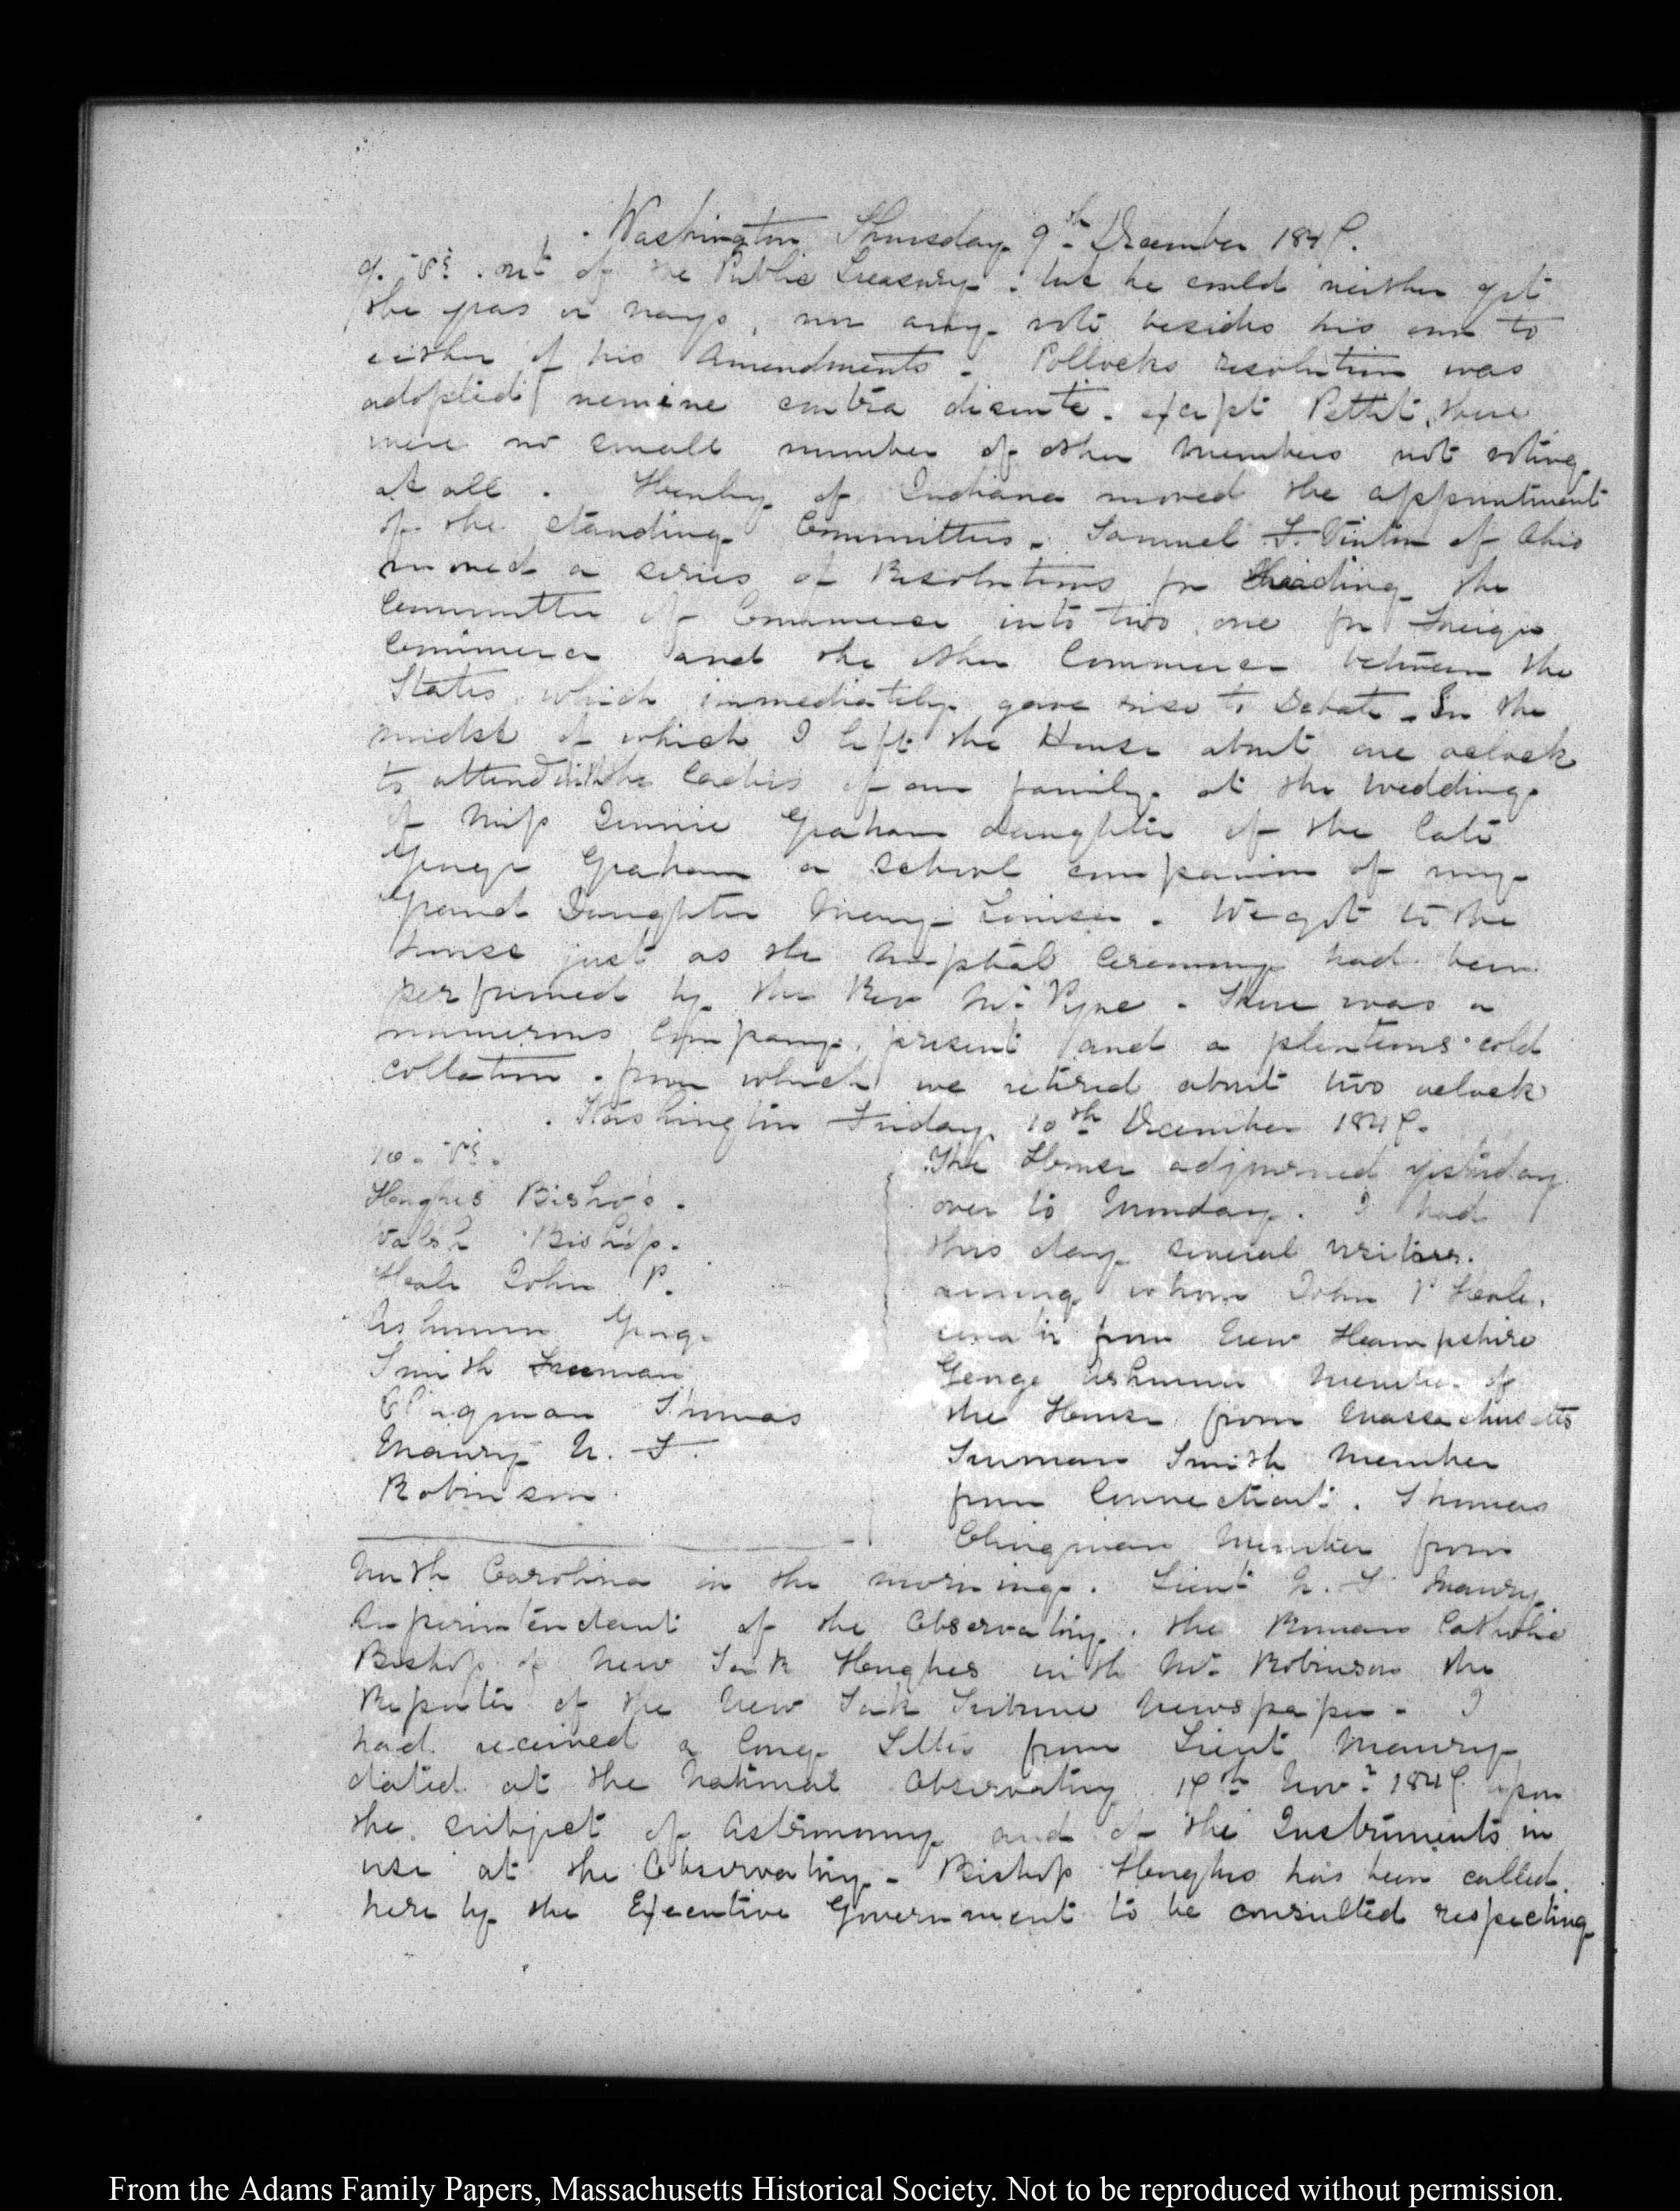 Washington Thursday 9th December 1847.
9. V: out of the Public Treasury. but he could neither get
the yeas or nays, nor any vote besides his own to
either of his Amendments. Pollocks resolution was
adopted nemine contra dicente. except Pettit, there
were no small number of other Members not voting
at all. Henley of Indiana moved the appointment
of the standing Committees. Samuel F. Vinton of Ohio
moved a series of Resolutions for dividing the
Committee of Commerce into two, one for Foreign
Commerce and the other Commerce between the
States, which immediately gave rise to Debate. In the
midst of which I left the House about one oclock
to attend with the Ladies of our family at the wedding
of Miss Graham daughter of the late
George Graham a school companion of my
Grand Daughter Mary Louisa. We got to the
house just as the nuptial Ceremony had been
performed by the Rev Mr. Pyne. There was a
numerous Company present and a plenteous cold
collation. from which we retired about two oclock
Washington Friday 10th December 1847.
10. V:
Hughes Bishop.
Walsh Bishop.
Heale John P.
Ashmun George
Smith Truman
Clingman Thomas
Maury M. F.
Robinson
The House adjourned yesterday
over to Monday. I had
this day several visitors.
among whom John P Heale.
senator from New Hampshire
George Ashmun Member of
the House from Massachusetts
Truman Smith Member
from Connecticut. Thomas
Clingman Member from
North Carolina in the morning. Lieut M. F. Maury
Superintendant of the Observatory. the Roman Catholic
Bishop of New York Hughes with Mr. Robinson the
Reporter of the New York Tribune Newspaper. I
had received a long Letter from Lieut Maury
dated at the National Observatory 17th Novr. 1847 upon
the subject of Astronomy and of the Instruments in
use at the Observatory. Bishop Hughes has been called
here by the Executive Government to be consulted respecting
From the Adams Family Papers, Massachusetts Historical Society. Not to be reproduced without permission.